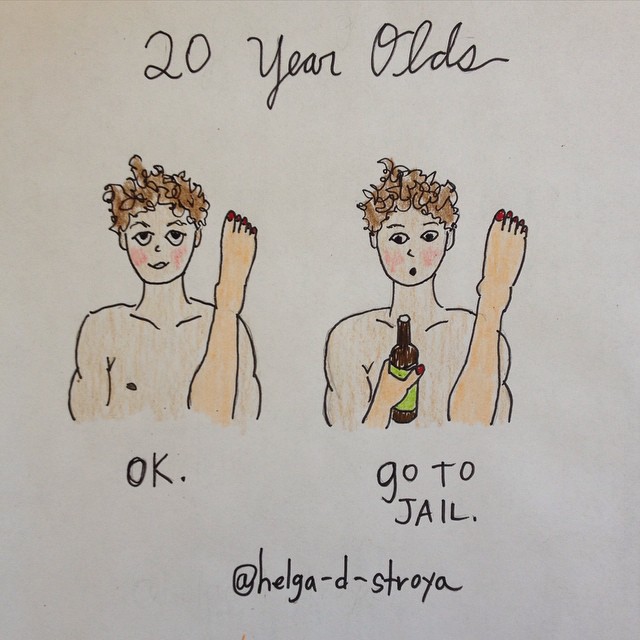 20 Year Olds
OK.
go to
JAIL.
@helga-d-stroya